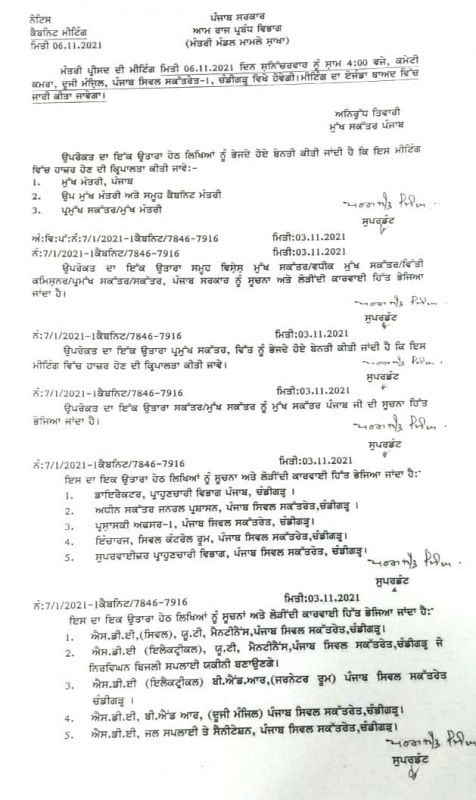 ਨੋਟਿਸ
ਕੈਬਨਿਟ ਮੀਟਿੰਗ
ਮਿਤੀ 06.11.2021
ਪੰਜਾਬ ਸਰਕਾਰ
ਆਮ ਰਾਜ ਪ੍ਰਬੰਧ ਵਿਭਾਗ
(ਮੰਤਰੀ ਮੰਡਲ ਮਾਮਲੇ ਸ਼ਾਖਾ)
ਮੰਤਰੀ ਪ੍ਰੀਸਦ ਦੀ ਮੀਟਿੰਗ ਮਿਤੀ 06.11.2021 ਦਿਨ ਸ਼ਨਿੱਚਰਵਾਰ ਨੂੰ ਸ਼ਾਮ 4:00 ਵਜੇ, ਕਮੇਟੀ
ਕਮਰਾ, ਦੂਜੀ ਮੰਜ਼ਿਲ, ਪੰਜਾਬ ਸਿਵਲ ਸਕੱਤਰੇਤ-1, ਚੰਡੀਗੜ੍ਹ ਵਿਖੇ ਹੋਵੇਗੀ।ਮੀਟਿੰਗ ਦਾ ਏਜੰਡਾ ਬਾਅਦ ਵਿੱਚ
ਜਾਰੀ ਕੀਤਾ ਜਾਵੇਗਾ।
ਅਨਿਰੁੱਧ ਤਿਵਾਰੀ
ਮੁੱਖ ਸਕੱਤਰ ਪੰਜਾਬ
ਉਪਰੋਕਤ ਦਾ ਇੱਕ ਉਤਾਰਾ ਹੇਠ ਲਿਖਿਆਂ ਨੂੰ ਭੇਜਦੇ ਹੋਏ ਬੇਨਤੀ ਕੀਤੀ ਜਾਂਦੀ ਹੈ ਕਿ ਇਸ ਮੀਟਿੰਗ
ਵਿੱਚ ਹਾਜ਼ਰ ਹੋਣ ਦੀ ਕ੍ਰਿਪਾਲਤਾ ਕੀਤੀ ਜਾਵੇ:-
1. ਮੁੱਖ ਮੰਤਰੀ, ਪੰਜਾਬ
2. ਉਪ ਮੁੱਖ ਮੰਤਰੀ ਅਤੇ ਸਮੂਹ ਕੈਬਨਿਟ ਮੰਤਰੀ
3. ਪ੍ਰਮੁੱਖ ਸਕੱਤਰ/ਮੁੱਖ ਮੰਤਰੀ
ਸੁਪਰਡੰਟ
ਅੰ:ਵਿ:ਪੱ:ਨੰ:7/1/2021-1ਕੈਬਨਿਟ/7846-7916 ਮਿਤੀ:03.11.2021
ਨੰ:7/1/2021-1ਕੈਬਨਿਟ/7846-7916 ਮਿਤੀ:03.11.2021
ਉਪਰੋਕਤ ਦਾ ਇੱਕ ਉਤਾਰਾ ਸਮੂਹ ਵਿਸ਼ੇਸ਼ ਮੁੱਖ ਸਕੱਤਰ/ਵਧੀਕ ਮੁੱਖ ਸਕੱਤਰ/ਵਿੱਤੀ
ਕਮਿਸ਼ਨਰ/ਪ੍ਰਮੁੱਖ ਸਕੱਤਰ/ਸਕੱਤਰ, ਪੰਜਾਬ ਸਰਕਾਰ ਨੂੰ ਸੂਚਨਾ ਅਤੇ ਲੋੜੀਂਦੀ ਕਾਰਵਾਈ ਹਿੱਤ ਭੇਜਿਆ
ਜਾਂਦਾ ਹੈ।
ਸੁਪਰਡੰਟ
ਨੰ:7/1/2021-1ਕੈਬਨਿਟ/7846-7916 ਮਿਤੀ:03.11.2021
ਉਪਰੋਕਤ ਦਾ ਇੱਕ ਉਤਾਰਾ ਪ੍ਰਮੁੱਖ ਸਕੱਤਰ, ਵਿੱਤ ਨੂੰ ਭੇਜਦੇ ਹੋਏ ਬੇਨਤੀ ਕੀਤੀ ਜਾਂਦੀ ਹੈ ਕਿ ਇਸ
ਮੀਟਿੰਗ ਵਿੱਚ ਹਾਜ਼ਰ ਹੋਣ ਦੀ ਕ੍ਰਿਪਾਲਤਾ ਕੀਤੀ ਜਾਵੇ।
ਸੁਪਰਡੰਟ
ਨੰ:7/1/2021-1ਕੈਬਨਿਟ/7846-7916 ਮਿਤੀ:03.11.2021
ਉਪਰੋਕਤ ਦਾ ਇੱਕ ਉਤਾਰਾ ਸਕੱਤਰ/ਮੁੱਖ ਸਕੱਤਰ ਨੂੰ ਮੁੱਖ ਸਕੱਤਰ ਪੰਜਾਬ ਜੀ ਦੀ ਸੂਚਨਾ ਹਿੱਤ
ਭੇਜਿਆ ਜਾਂਦਾ ਹੈ।
ਸੁਪਰਡੰਟ
ਨੰ:7/1/2021-1ਕੈਬਨਿਟ/7846-7916 ਮਿਤੀ:03.11.2021
ਇਸ ਦਾ ਇਕ ਉਤਾਰਾ ਹੇਠ ਲਿਖਿਆਂ ਨੂੰ ਸੂਚਨਾ ਅਤੇ ਲੋੜੀਂਦੀ ਕਾਰਵਾਈ ਹਿੱਤ ਭੇਜਿਆ ਜਾਂਦਾ ਹੈ:-
1. ਡਾਇਰੈਕਟਰ, ਪ੍ਰਾਹੁਣਚਾਰੀ ਵਿਭਾਗ ਪੰਜਾਬ, ਚੰਡੀਗੜ੍ਹ ।
2. ਅਧੀਨ ਸਕੱਤਰ ਜਨਰਲ ਪ੍ਰਸ਼ਾਸਨ, ਪੰਜਾਬ ਸਿਵਲ ਸਕੱਤਰੇਤ,ਚੰਡੀਗੜ੍ਹ ।
3. ਪ੍ਰਸ਼ਾਸਕੀ ਅਫਸਰ-1, ਪੰਜਾਬ ਸਿਵਲ ਸਕੱਤਰੇਤ, ਚੰਡੀਗੜ੍ਹ।
4. ਇੰਚਾਰਜ, ਸਿਵਲ ਕੰਟਰੋਲ ਰੂਮ, ਪੰਜਾਬ ਸਿਵਲ ਸਕੱਤਰੇਤ,ਚੰਡੀਗੜ੍ਹ।
5. ਸੁਪਰਵਾਈਜ਼ਰ ਪ੍ਰਾਹੁਣਚਾਰੀ ਵਿਭਾਗ, ਪੰਜਾਬ ਸਿਵਲ ਸਕੱਤਰੇਤ, ਚੰਡੀਗੜ੍ਹ।
ਸੁਪਰਡੰਟ
ਨੰ:7/1/2021-1ਕੈਬਨਿਟ/7846-7916 ਮਿਤੀ:03.11.2021
ਇਸ ਦਾ ਇਕ ਉਤਾਰਾ ਹੇਠ ਲਿਖਿਆਂ ਨੂੰ ਸੂਚਨਾਂ ਅਤੇ ਲੋੜੀਂਦੀ ਕਾਰਵਾਈ ਹਿੱਤ ਭੇਜਿਆ ਜਾਂਦਾ ਹੈ:-
1. ਐਸ.ਡੀ.ਈ,(ਸਿਵਲ), ਯੂ.ਟੀ, ਮੈਨਟੀਨੈਂਸ,ਪੰਜਾਬ ਸਿਵਲ ਸਕੱਤਰੇਤ,ਚੰਡੀਗੜ੍ਹ।
2. ਐਸ.ਡੀ.ਈ (ਇਲੈਕਟ੍ਰੀਕਲ), ਯੂ.ਟੀ, ਮੈਨਟੀਨੈਂਸ,ਪੰਜਾਬ ਸਿਵਲ ਸਕੱਤਰੇਤ,ਚੰਡੀਗੜ੍ਹ ਜੋ
ਨਿਰਵਿਘਨ ਬਿਜਲੀ ਸਪਲਾਈ ਯਕੀਨੀ ਬਣਾਉਣਗੇ।
3. ਐਸ.ਡੀ.ਈ (ਇਲੈਕਟ੍ਰੀਕਲ) ਬੀ.ਐਂਡ.ਆਰ,(ਜਰਨੇਟਰ ਰੂਮ) ਪੰਜਾਬ ਸਿਵਲ ਸਕੱਤਰੇਤ
ਚੰਡੀਗੜ੍ਹ ।
4. ਐਸ.ਡੀ.ਈ, ਬੀ.ਐਂਡ ਆਰ, (ਦੂਜੀ ਮੰਜਿਲ) ਪੰਜਾਬ ਸਿਵਲ ਸਕੱਤਰੇਤ,ਚੰਡੀਗੜ੍ਹ।
5. ਐਸ.ਡੀ.ਈ, ਜਲ ਸਪਲਾਈ ਤੇ ਸੈਨੀਟੇਸ਼ਨ, ਪੰਜਾਬ ਸਿਵਲ ਸਕੱਤਰੇਤ,ਚੰਡੀਗੜ੍ਹ।
ਸੁਪਰਡੰਟ